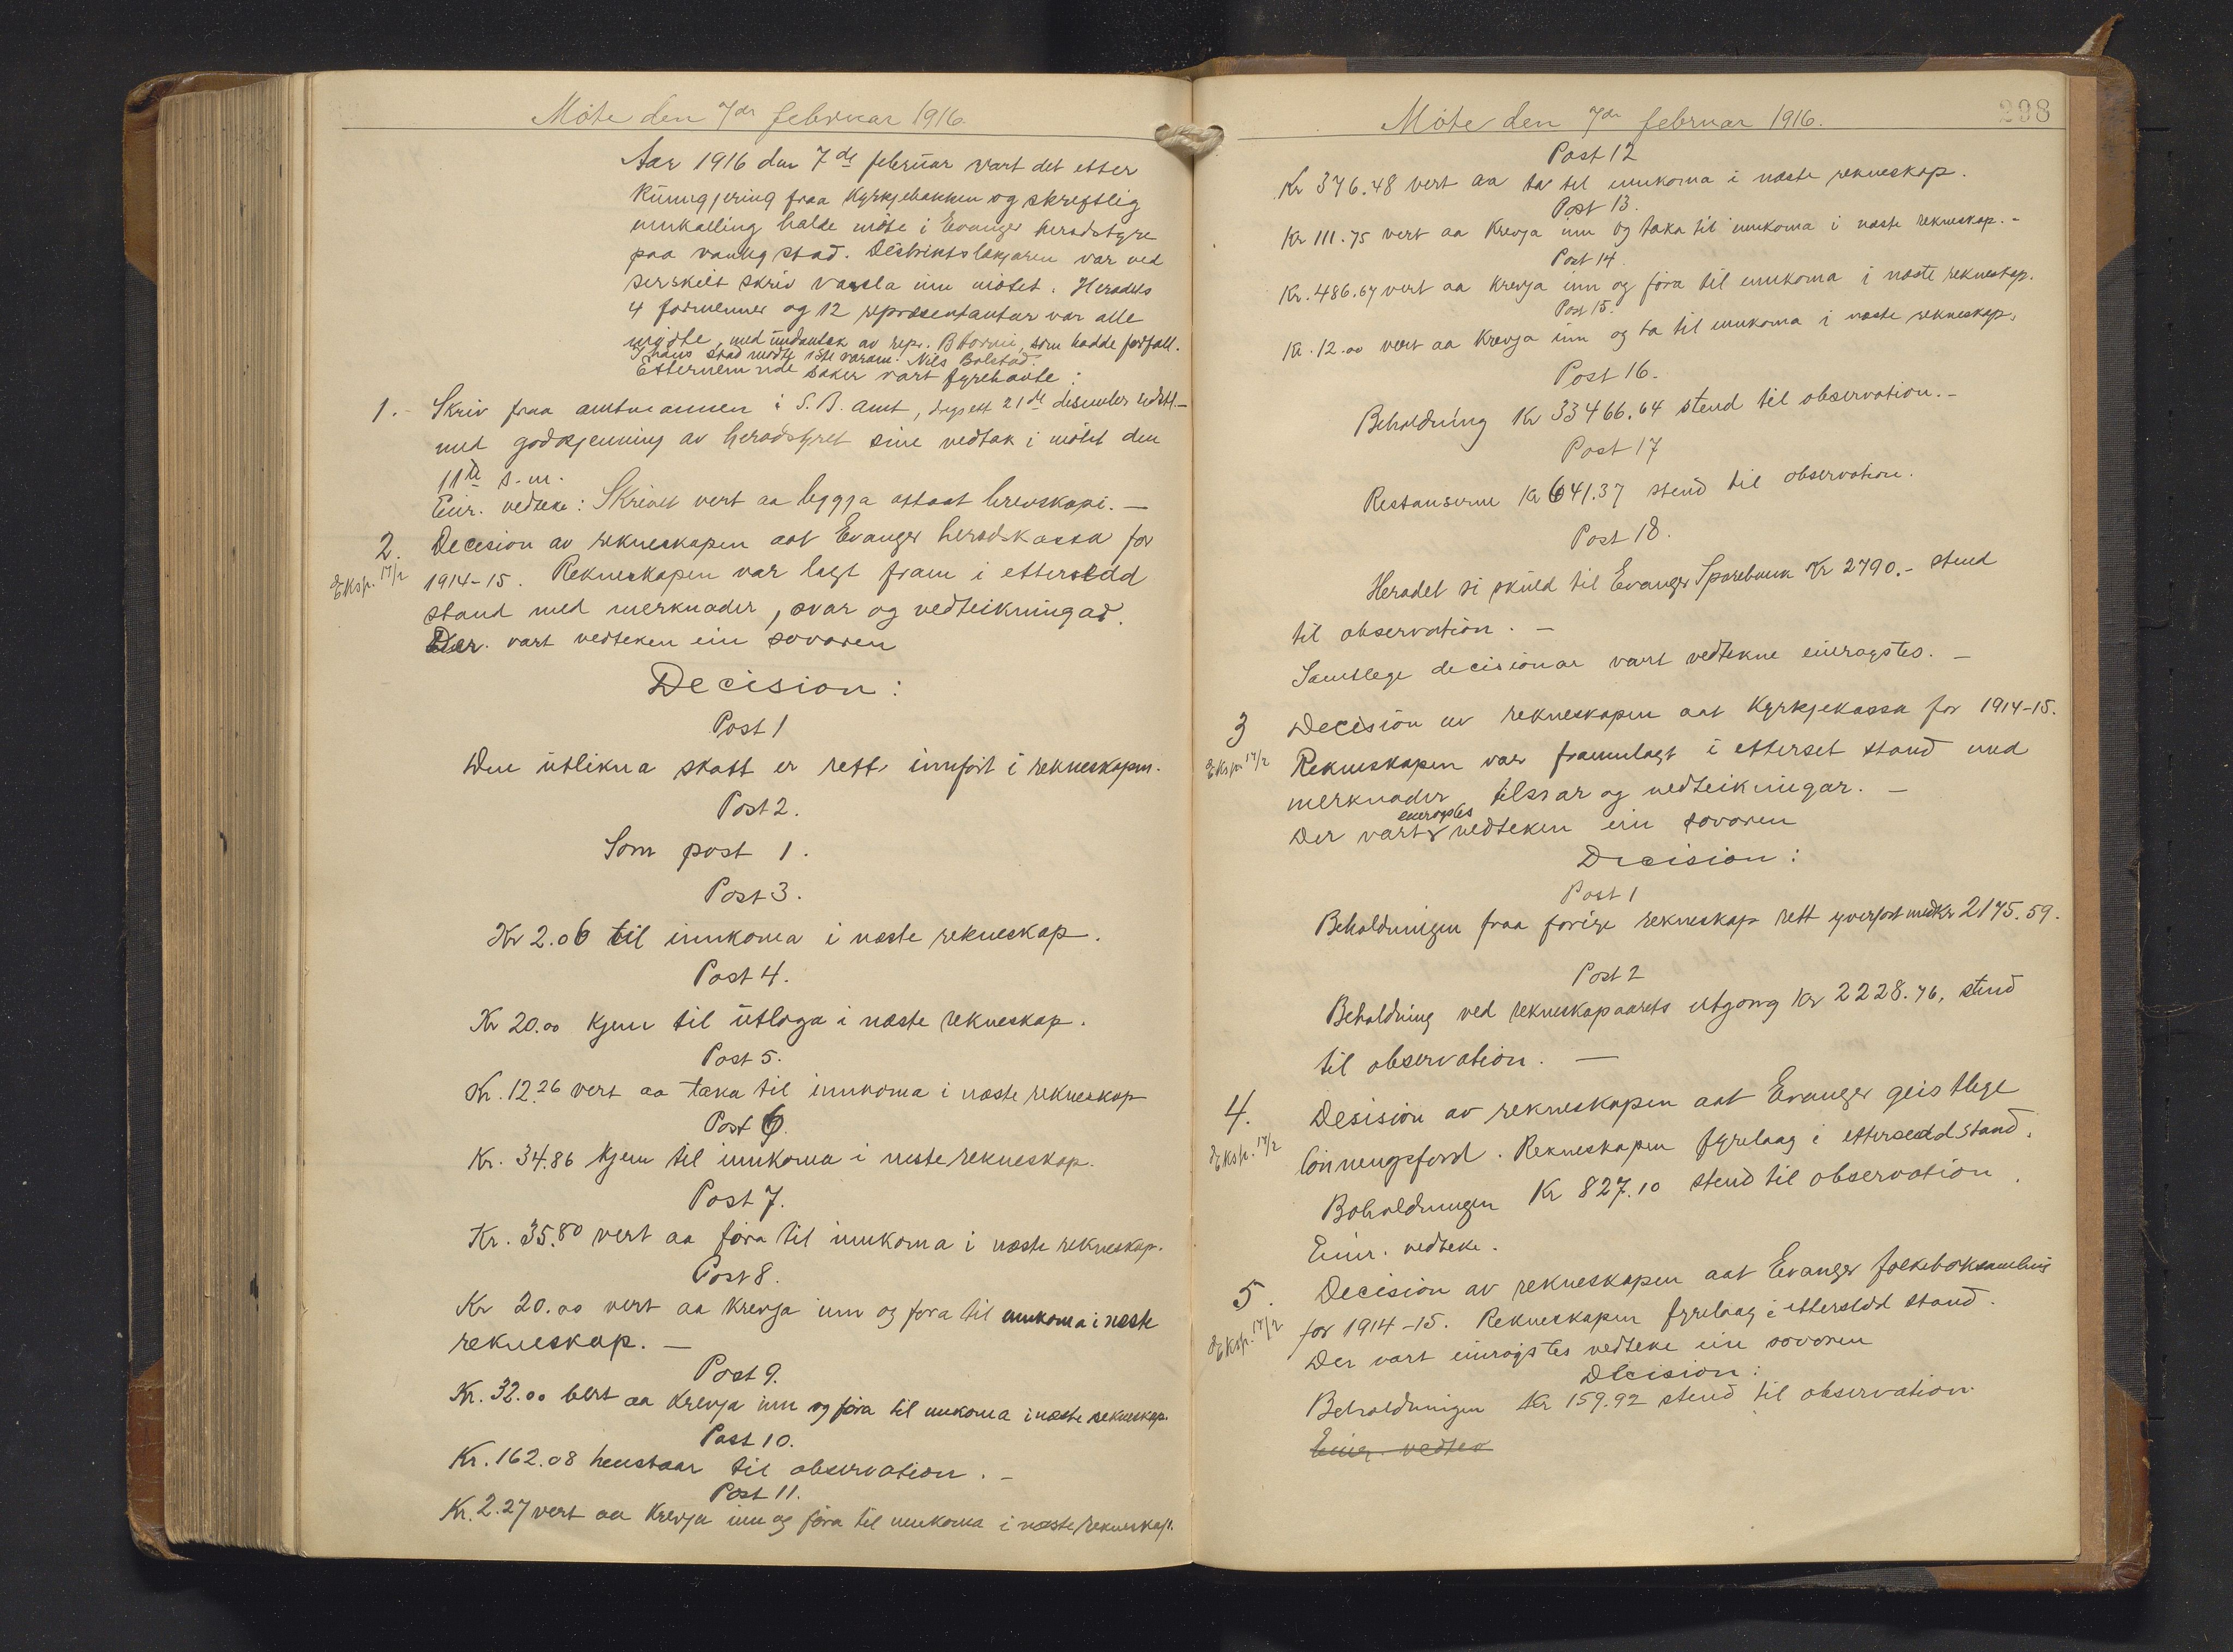 Møte den 7de februar 1916.
Aar 1916 den 7de februar vart det etter
kunngjering fraa kyrkjebakken og skreftlig
innkalling halde møte i Evanger heradstyre
paa vanleg stad. Distriktslækjaren var ved
serskilt skriv varsla um møtet. Heradets
4 formenner og 12 repræsentantar var alle
møtte, med undantak av repr. B Horvei, som hadde forfall.
I hans stad møtte 1ste varam. Nils Bolstad.
Etternemnde saker vart fyrehavte:
1. Skriv fraa amtmannen i S. B. amt, dagsett 21de desember sidstl. –
med godkjenning av heradstyret sine vedtak i møtet den
11te s. m.
Einr. vedteke: Skrivet vert aa leggja attaat brevskapi. –
2. Decision av rekneskapen aat Evanger heradskassa for
Eksp. 17/2
1914-15. Rekneskapen var lagt fram i ettersedd
stand med merknader, svar og vedteikningar.
Der. vart vedteken ein sovoren
Decision:
Post 1
Den utlikna skatt er rett innført i rekneskapen.
Post 2.
Som post 1.
Post 3.
Kr 2.06 til innkoma i næste rekneskap.
Post 4.
Kr 20.00 kjem til utlaga i næste rekneskap.
Post 5.
Kr. 12.26 vert aa taka til innkoma i næste rekneskap
Post 6.
Kr. 34.86 kjem til innkoma i neste rekneskap.
Post 7.
Kr. 35.80 vert aa føra til innkoma i næste rekneskap.
Post 8.
Kr 20.00 vert aa krevja inn og føra til innkoma i næste
rekneskap. –
Post 9.
Kr. 32.00 vert aa krevja inn og føra til innkoma i næste rekneskap.
Post 10.
Kr. 162.08 henstaar til observation. –
Post 11.
Kr. 2.27 vert aa krevja inn og føra til innkoma i næste rekneskap.
Møte den 7de februar 1916.
298
Post 12
Kr 376.48 vert aa ta til innkoma i næste rekneskap.
Post 13.
Kr 111.75 vert aa krevja inn og taka til innkoma i næste rekneskap. –
Post 14.
Kr. 486.67 vert aa krevja inn og føra til innkoma i næste rekneskap.
Post 15.
Kr. 12.00 vert aa krevja inn og ta til innkoma i næste rekneskap.
Post 16.
Beholdning Kr 33466.64 stend til observation. –
Post 17
Restanserne Kr 641.37 stend til observation.
Post 18.
Heradet si skuld til Evanger Sparebank Kr 2790.– stend
til observation. –
Samtlege decisionar vart vedtekne einrøystes. –
3 Decision av rekneskapen aat Kyrkjekassa for 1914-15.
Eksp. 17/2
Rekneskapen var framlagt i etterset stand med
merknader tilsvar og vedteikningar. –
einrøystes
Der vart vedteken ein sovoren
Decision:
Post 1
Beholdningen fraa forige rekneskap rett yverført med Kr 2175.59.
Post 2
Beholdning ved rekneskapaarets utgong Kr 2228.76, stend
til observation. –
4. Desision av rekneskapen aat Evanger geistlege
Eksp. 17/2
lønningsfond. Rekneskapen fyrelaag i ettersedd stand.
Beholdningen Kr 827.10 stend til observation.
Einr. vedteke.
5. Decision av rekneskapen aat Evanger folkeboksamling
Eksp. 17/2
for 1914-15. Rekneskapen fyrelaag i ettersedd stand.
Der vart einrøystes vedteke ein sovoren
Decision:
Beholdningen Kr 159.92 stend til observation.
Einr. vedtek